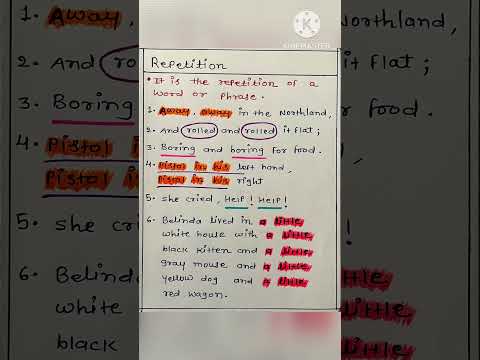 1. Away, away in the Northland,
2. And rolled and rolled it flat;
3. Boring and boring for food.
4. Pistol in his
Pistol in
5. she cried, Help! Help!
6. Belinda lived in a little
white
black
KINEMASTER
Repetition
• It is the repetition of a
word or phrase.
1. Away, away in the Northland,
2. And rolled and rolled it flat;
3. Boring and boring for food.
4. Pistol in his left hand,
Pistol in his right
5. she cried, Help! Help!
6. Belinda lived in a little
white house with a little
black kitten and a little
gray mouse and a little
yellow dog and a little
red wagon.